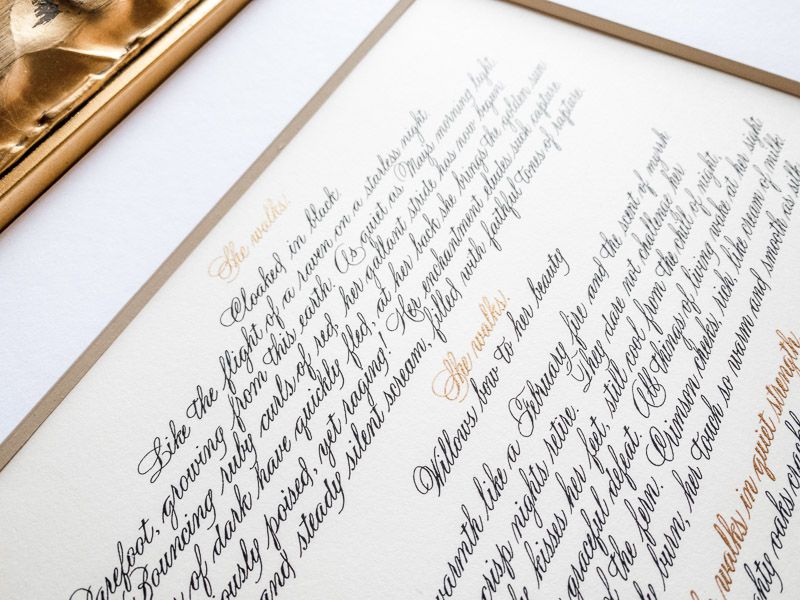 She walks!
Cloaked in black.
Like the flight of a raven on a starless night.
Barefoot, growing from this earth. As quiet as May's morning light.
Bouncing ruby curls of red, her gallant stride has now begun.
of dark have quickly fled, at her back she brings the golden sun.
poised, yet raging! Her enchantment eludes such capture
and steady silent scream, filled with faithful tones of rapture.
She walks!
Willows bow to her beauty
warmth like a February fire and the scent of myrrh
crisp nights retire. They dare not challenge her
kisses her feet, still cool from the chill of night,
graceful defeat. All things of living wake at her sight
of the fern. Crimson cheeks, rich like cream of milk
burn, her touch so warm and smooth as silk
walks in quiet strength
oaks